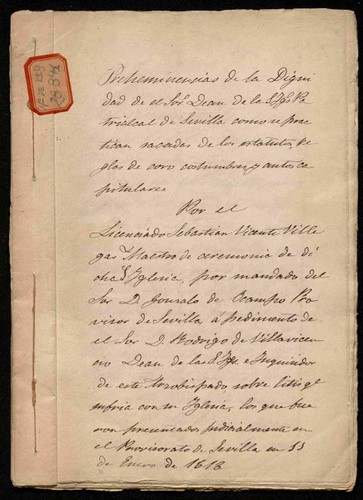 Preheminencias de la Digni
dad de el Sor. Dean de la S. Yga. Pa
triarcal de Sevilla como se prac
tican sacadas de los estatutos, Re
glas de coro costumbres y autos ca
pitulares
Por el
Licenciado Sebastian Vicente Ville
gas Maestro de ceremonia de di
cha Sta. Yglesia, por mandado del
Sor. D. Gonzalo de Ocampo Pro
visor de Sevilla à pedimento de
el Sor. D. Rodrigo de Villavicen
cio Dean de la S. Yga. e Inquisidor
de este Arzobispado sobre litis qe.
con su Yglesia, los que fue
ron presentados judicialmente en
el Provisorato de Sevilla en 11
de Enero de 1616